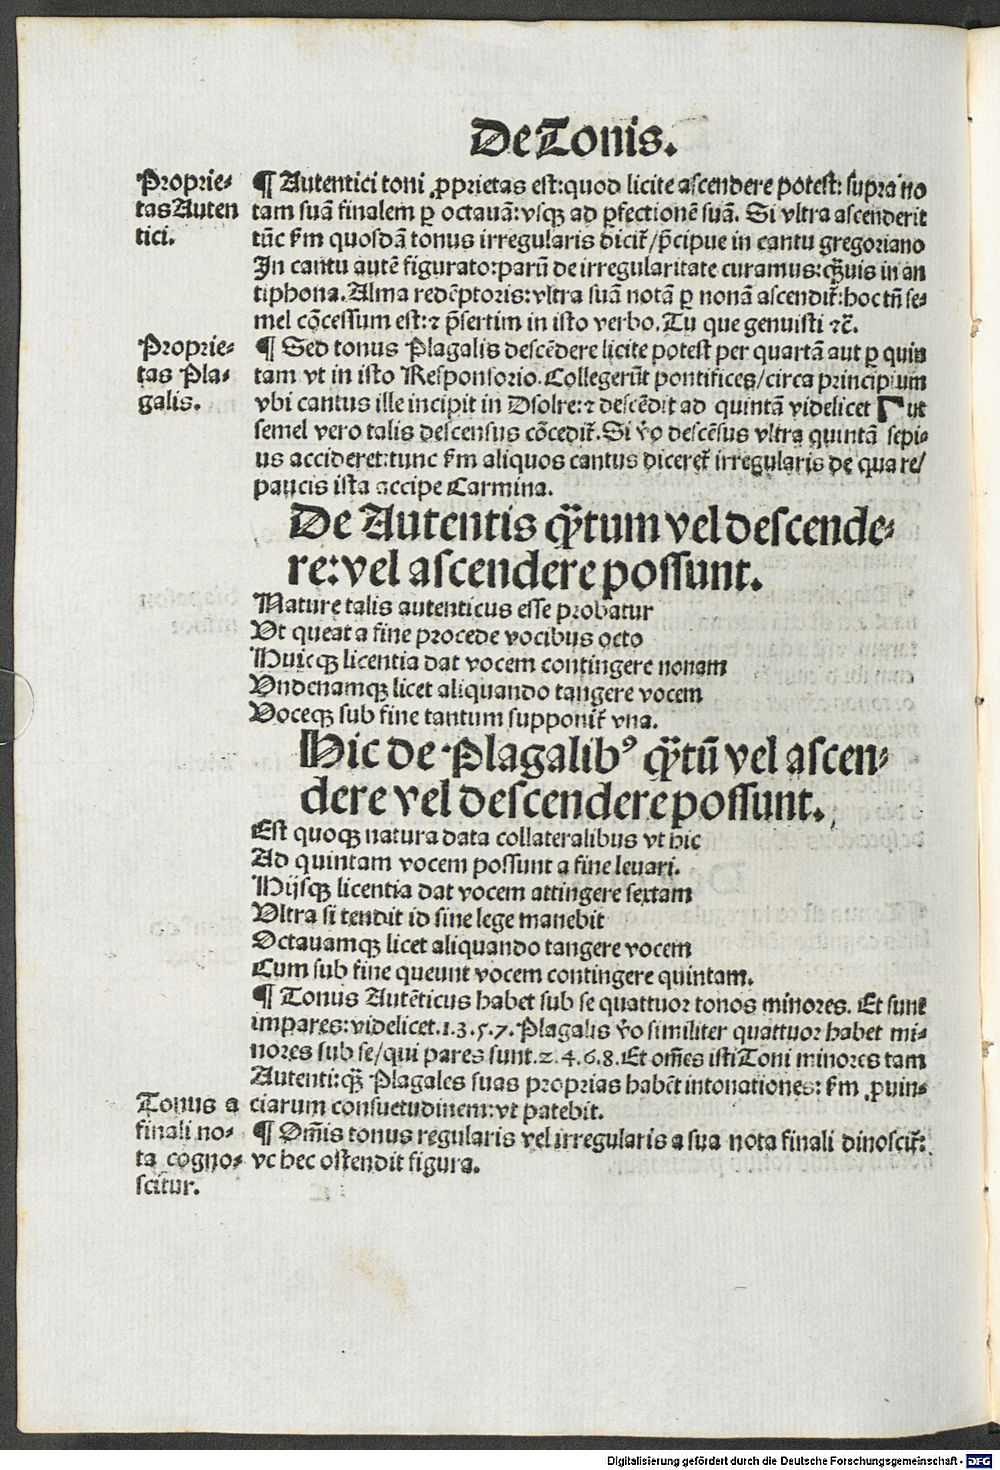 De Tonis.
Proprie-
tas Auten
tici.
¶ Autentici toni ꝓprietas est: quod licite ascendere potest: supra no
tam suā finalem ꝑ octauā: vsqꝫ ad ꝑfectionē suā. Si vltra ascenderit
tūc ẜm quosdā tonus irregularis dicit̄/ p̄cipue in cantu gregoriano
In cantu autē figurato: parū de irregularitate curamus: qꝫuis in an
tiphona. Alma redēptoris: vltra suā notā ꝑ nonā ascendit̄: hoc tn̄ se-
mel cōcessum est: ⁊ p̄sertim in isto verbo. Tu que genuisti ⁊c̄.
Proprie-
tas Pla-
galis.
¶ Sed tonus Plagalis descēdere licite potest per quartā aut ꝑ quin
tam vt in isto Responsorio. Collegerūt pontifices/ circa principium
vbi cantus ille incipit in Dsolre: ⁊ descēdit ad quintā videlicet Γ ut
semel vero talis descensus cōcedit̄. Si v̄o descēsus vltra quintā sepi-
us accideret: tunc ẜm aliquos cantus diceret̄ irregularis de qua re/
paucis ista accipe Carmina.
De Autentis qꝫtum vel descende-
re: vel ascendere possunt.
Nature talis autenticus esse probatur
Vt queat a fine procede vocibus octo
Huicqꝫ licentia dat vocem contingere nonam
Vndenamqꝫ licet aliquando tangere vocem
Voceqꝫ sub fine tantum supponit̄ vna.
Hic de Plagalibꝰ qꝫtū vel ascen-
dere vel descendere possunt.
Est quoqꝫ natura data collateralibus vt hic
Ad quintam vocem possunt a fine leuari.
Hijsqꝫ licentia dat vocem attingere sextam
Vltra si tendit id sine lege manebit
Octauamqꝫ licet aliquando tangere vocem
Cum sub fine queunt vocem contingere quintam.
¶ Tonus Autēticus habet sub se quattuor tonos minores. Et sunt
impares: videlicet. 1. 3. 5. 7. Plagalis v̄o similiter quattuor habet mi-
nores sub se/ qui pares sunt. 2. 4. 6. 8. Et om̄es isti Toni minores tam
Autenti: qꝫ Plagales suas proprias habēt intonationes: ẜm ꝓuin-
ciarum consuetudinem: vt patebit.
Tonus a
finali no-
ta cogno-
scitur.
¶ Om̄is tonus regularis vel irregularis a sua nota finali dinoscit̄:
vt hec ostendit figura.
Digitalisierung gefördert durch die Deutsche Forschungsgemeinschaft - DFG